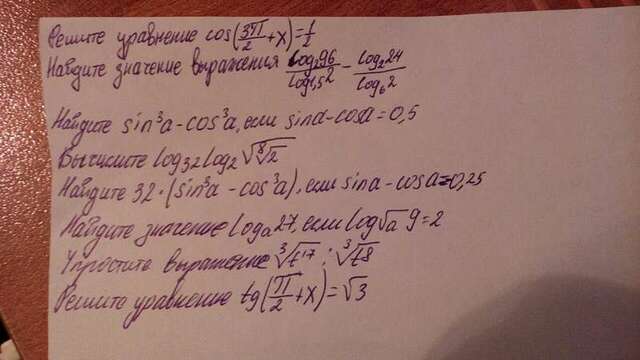 Решите уравнение cos(3π/2+x)=1/2
Найдите значение выражения log₂96/log₁,₅2 - log₂24/log₆2
Найдите sin³a-cos³a, если sind-cosa=0,5
Вычислите log₃₂log₂√⁸√2
Найдите 32·(sin³a-cos³a), если sina-cosa=0,25
Найдите значение logₐ27, если log√a 9=2
Упростите выражение ³√t¹⁷ : ³√t8
Решите уравнение tg(π/2+x)=√3